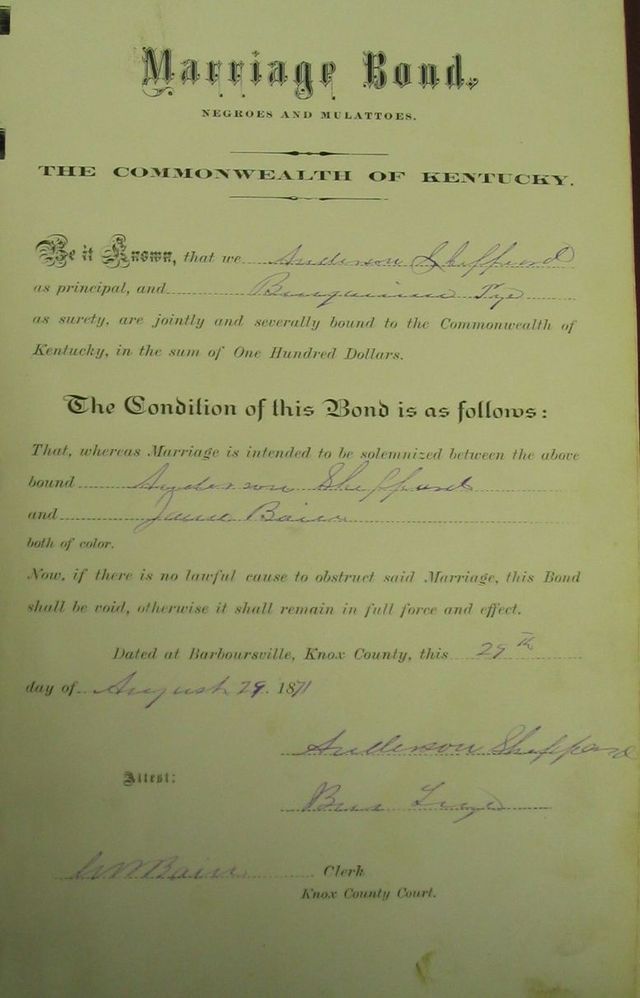 Marriage Bond.
NEGROES AND MULATTOES.
THE COMMONWEALTH OF KENTUCKY.
Be it Known, that we Anderson Sheppard
as principal, and Benjamine Tye
as surety, are jointly and severally bound to the Commonwealth of
Kentucky, in the sum of One Hundred Dollars.
The Condition of this Bond is as follows:
That, whereas Marriage is intended to be solemnized between the above
bound Anderson Sheppard
and Jane
both of color.
Now, if there is no lawful cause to obstruct said Marriage, this Bond
shall be void, otherwise it shall remain in full force and effect.
Dated at Barboursville, Knox County, this 29th
day of August 29. 1871
Anderson Sheppard
Attest:
Ben
Clerk
Knox County Court.